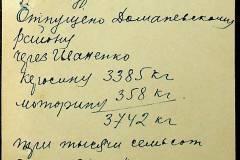 Отпущено Доманевскому
району
через Шаненко
Керосину 3385 кг
моторину 358 кг
3742 кг
три тысячи семьсот